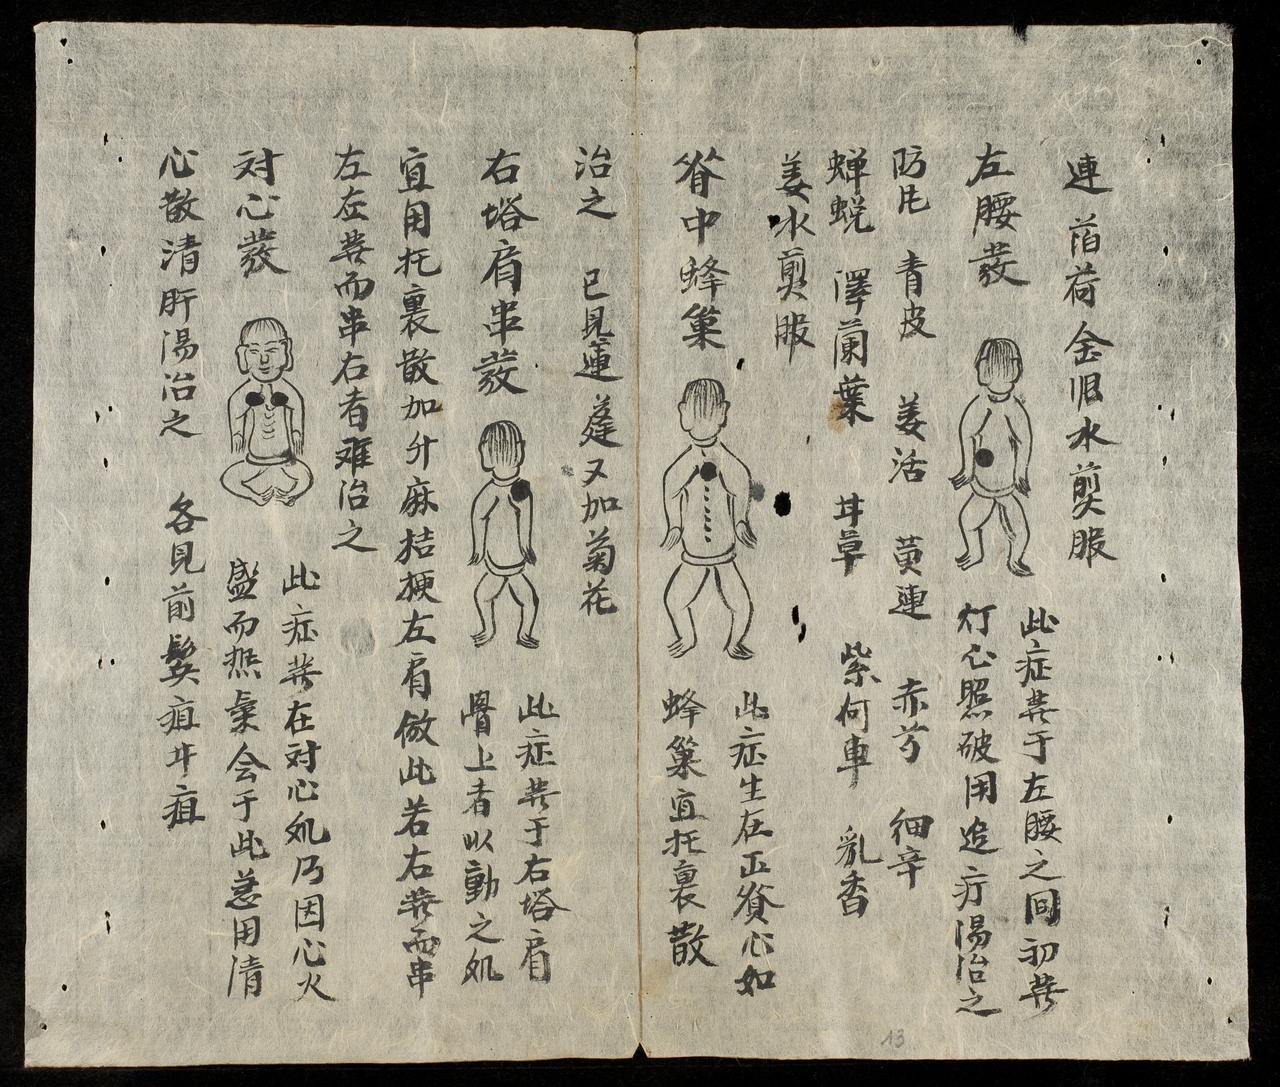 連 萡荷 金艮水剪服
左腰發
此症發于左腰之间初發
灯心照破用追疔湯治之
防風 青皮 姜活 黄連 赤芍 细辛
蝉蜕 澤蘭葉 甘草 紫何車 乳香
姜水剪服
脊中蜂巢
此症生在正脊心如
蜂巢宜托裏散
治之 已見蓮蓬又加菊花
右塔肩串發
此症發于右塔肩
骨上者以動之処
宜用托裏散加升麻桔梗左肩倣此若右發而串
左左發而串右者难治之
対心發
此症發在対心処乃因心火
盛而热氣会于此恙用清
心散清肝湯治之 各見前鬓疽甘疽
13